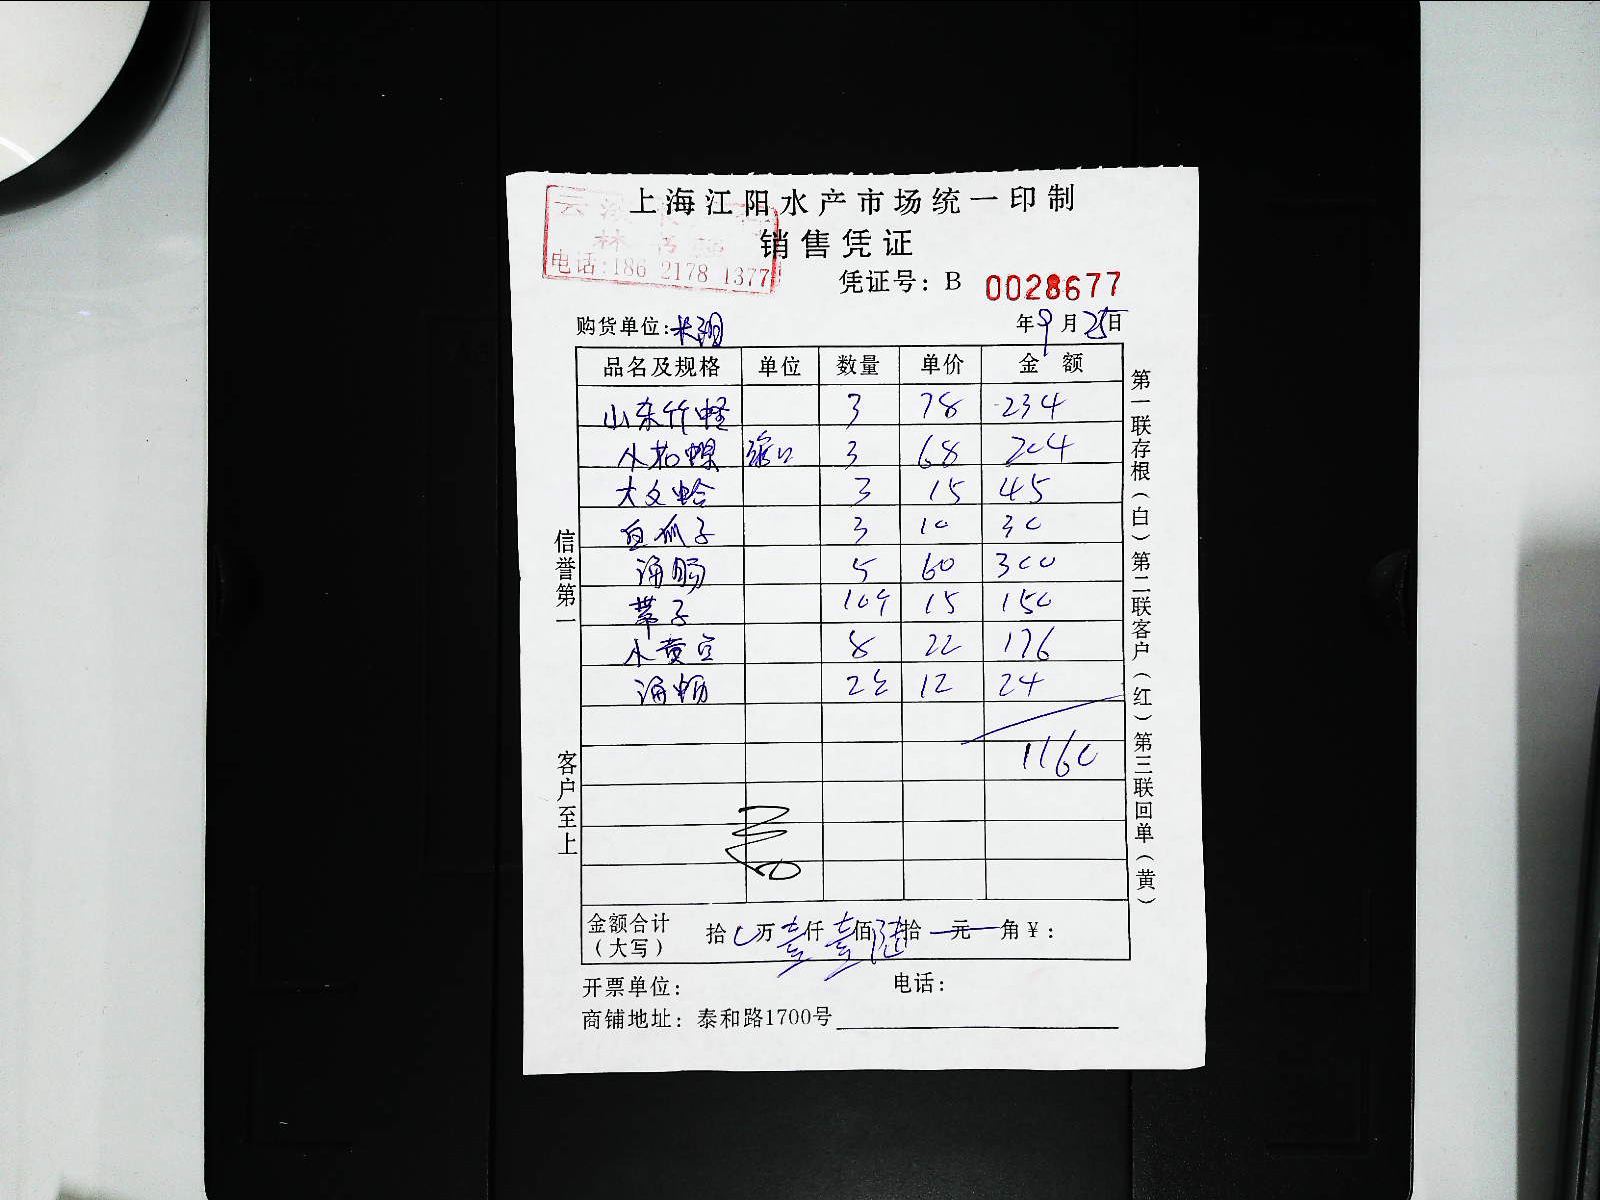 上海江阳水产市场统一印制
销售凭证
电话:186 2178 1377
凭证号：B 0028677
购货单位:
年9月25日
品名及规格 单位 数量 单价 金额
山东竹蛏 3 78 234
小 3 68 204
大文蛤 3 15 45
白瓜子 3 10 30
海肠 5 60 300
带子 10个 15 150
小黄豆 8 22 176
海蛎 2 12 24
1160
金额合计（大写） 拾 万壹仟壹佰陆拾 元 角￥：
开票单位： 电话：
商铺地址：泰和路1700号
信誉第一
客户至上
第一联存根（白）第二联客户（红）第三联回单（黄）